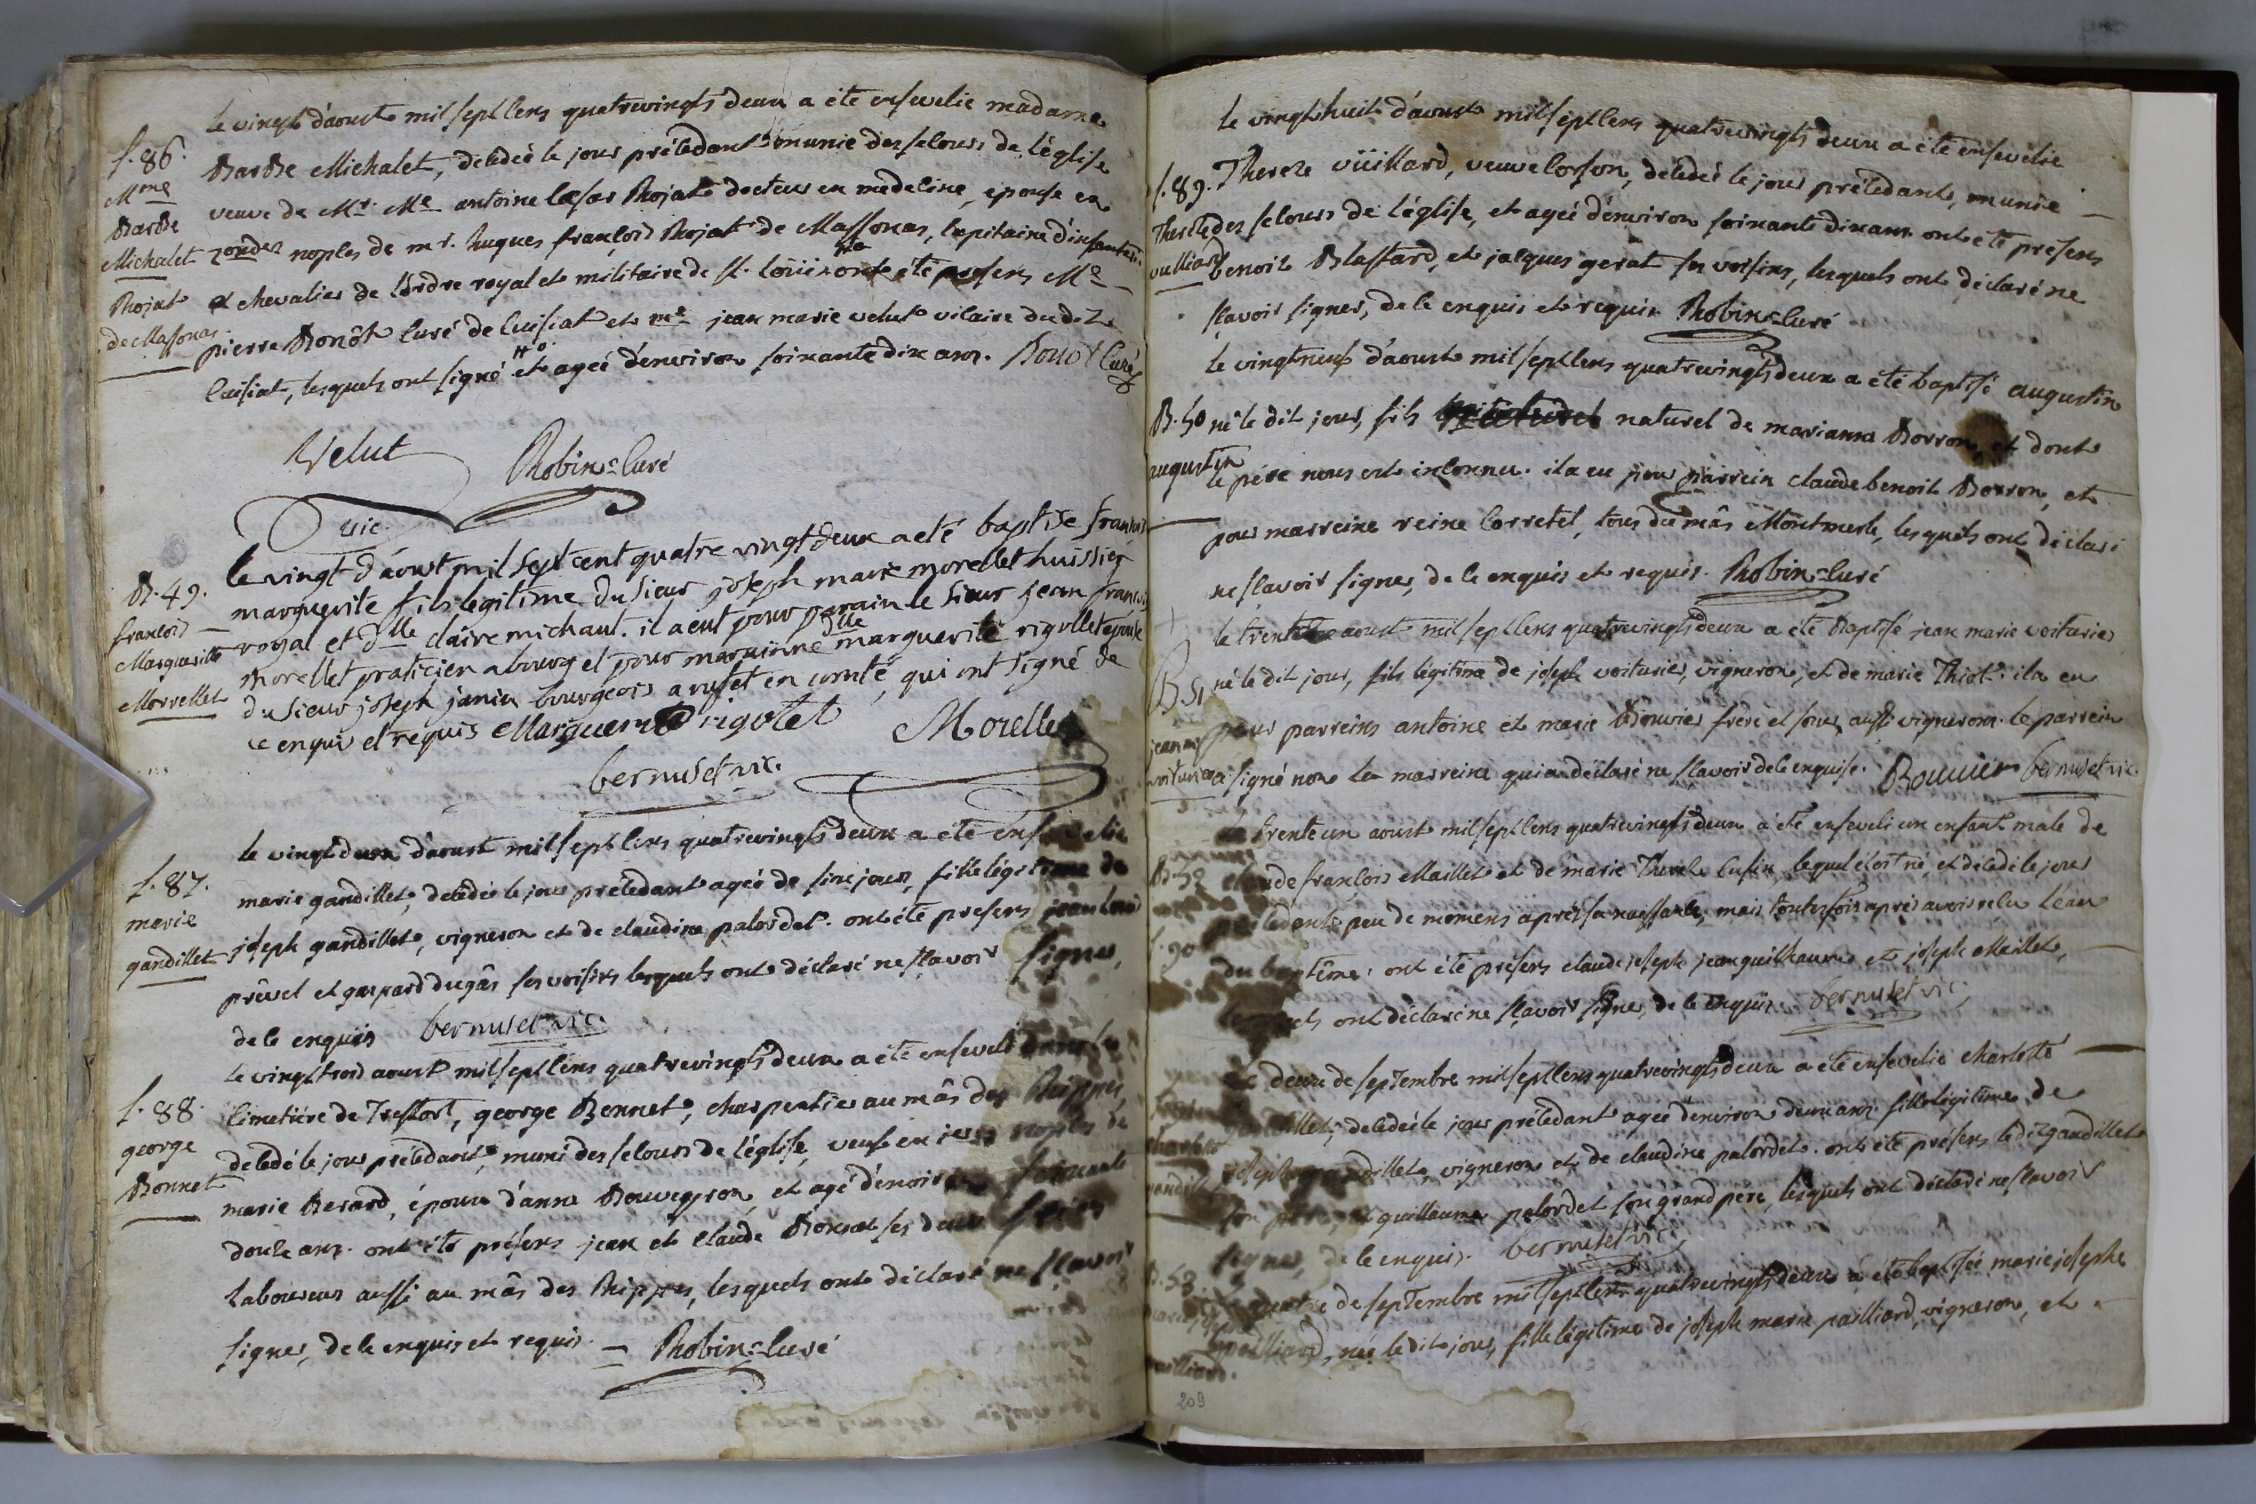 le vingt d'aoust mil sept cens quatrevingts deux a été ensevelie madame
S. 86. Barbe Michalet, décédée le jour précédant munie des secours de l'église
Mme veuve de Mr. Me antoine cæsar Rojat docteur en medecine, epouse en
Barbe
Michalet secondes noples de mr. hugues françois Rojat de Massonas, capitaine d'infanterie
Rojat et chevalier de l'ordre royal et militaire de st. loüis ont été presens Me
de Massonas. pierre Bonôt curé de Cuisiat et me jean marie velut vicaire dudit
Cuisiat, lesquels ont signé et ageé d'environ soixante dix ans. Bonot Curé
Velut Robin curé
vic.
le vingt d'aoust mil sept cent quatre vingt deux a eté baptise françois
B. 49. marguerite fils legitime du sieur joseph marie morellet huissier
françois royal et dlle claire michaut. il a eut pour parain le sieur jean françois
Margueritte morellet praticien a bourg et pour marainne dlle marguerite rigollet epouse
Morrellet du sieur joseph janin bourgeois a en comté, qui ont signé de
ce enquis et requis Marguerite rigolet Morellet
bernuset vic.
le vingt deux d'aoust mil sept cens quatrevingts deux a été ensevelie
S. 87. marie gandillet, décédée le jour précédant ageé de six jours, fille légitime de
marie joseph gandillet, vigneron et de claudine palordet. ont été presens jean louis
gandillet prêvel et gaspard dugâs ses voisins lesquels ont déclaré ne sçavoir signer,
de ce enquis bernuset vic.
le vingt trois aoust mil sept cens quatrevingts deux a été enseveli dans le
S. 88. Cimetière de Treffort, george Bonnet, charpentier au mâs des Rippes,
george décédé le jour précédant, muni des secours de l'église, veuf en noples de
Bonnet marie Berard, époux d'anne Bouveyron, et agé d'environ soixante
douze ans. ont été présens jean et claude Bonnet ses deux freres
laboureurs aussi au mâs des Rippes, lesquels ont déclaré ne sçavoir
signer, de ce enquis et requis. Robin curé
le vingt huit d'aoust mil sept cens quatrevingts deux a été ensevelie
S. 89. Therese vüillard, veuve corson, décédée le jour précédant, munie
Therese des secours de l'église, et ageé d'environ soixante dix ans ont été presens
vulliard benoit Blassard, et jacques gerat ses voisins, lesquels ont déclaré ne
sçavoir signer, de ce enquis et requis. Robin curé
le vingt neuf d'aoust mil sept cens quatrevingts deux a été baptisé augustin
B. 50 né le dit jour, fils naturel de marianne Borron, et dont
augustin le père nous est inconnu. il a eu pour parrein claude benoit Borron, et
pour marreine reine Corretel, tous du mâs Montmerle, lesquels ont déclaré
ne sçavoir signer, de ce enquis et requis. Robin curé
le trente aoust mil sept cens quatrevingts deux a été Baptisé jean marie voiturier
B. 51 né le dit jour, fils légitime de joseph voiturier, vigneron, et de marie Thiot. il a eu
jean m. pour parreins antoine et marie Bouvier frère et soeur, aussi vignerons. le parrein
voiturier a signé non la marreine qui a déclaré ne sçavoir de ce enquise. Bouvier bernuset vic.
le trente un aoust mil sept cens quatrevingts deux a été enseveli un enfant male de
B. 52 claude françois Maillet et de marie Therese cusin, lequel étoit né, et décédé le jour
S. 90 précédent peu de momens après sa naissance, mais toutesfois après avoir reçu l'eau
du baptême. ont été présens claude joseph jean guilleaume et joseph Maillet,
lesquels ont déclaré ne sçavoir signer, de ce enquis. bernuset vic.
le deux de septembre mil sept cens quatrevingts deux a été ensevelie charlote
gandillet, décédée le jour précédant ageé d'environ deux ans fille légitime de
charlote joseph gandillet, vigneron et de claudine palordet. ont été présens ledit gandillet
gandillet son père, et guillaume palordet son grand père, lesquels ont déclaré ne sçavoir
signer, de ce enquis. bernuset vic.
B. 53 le quatre de septembre mil sept cens quatrevingts deux a été baptisée marie josephe
marie josephe pailliard, née le dit jour, fille légitime de joseph marie pailliard, vigneron, et
pailliard.
209